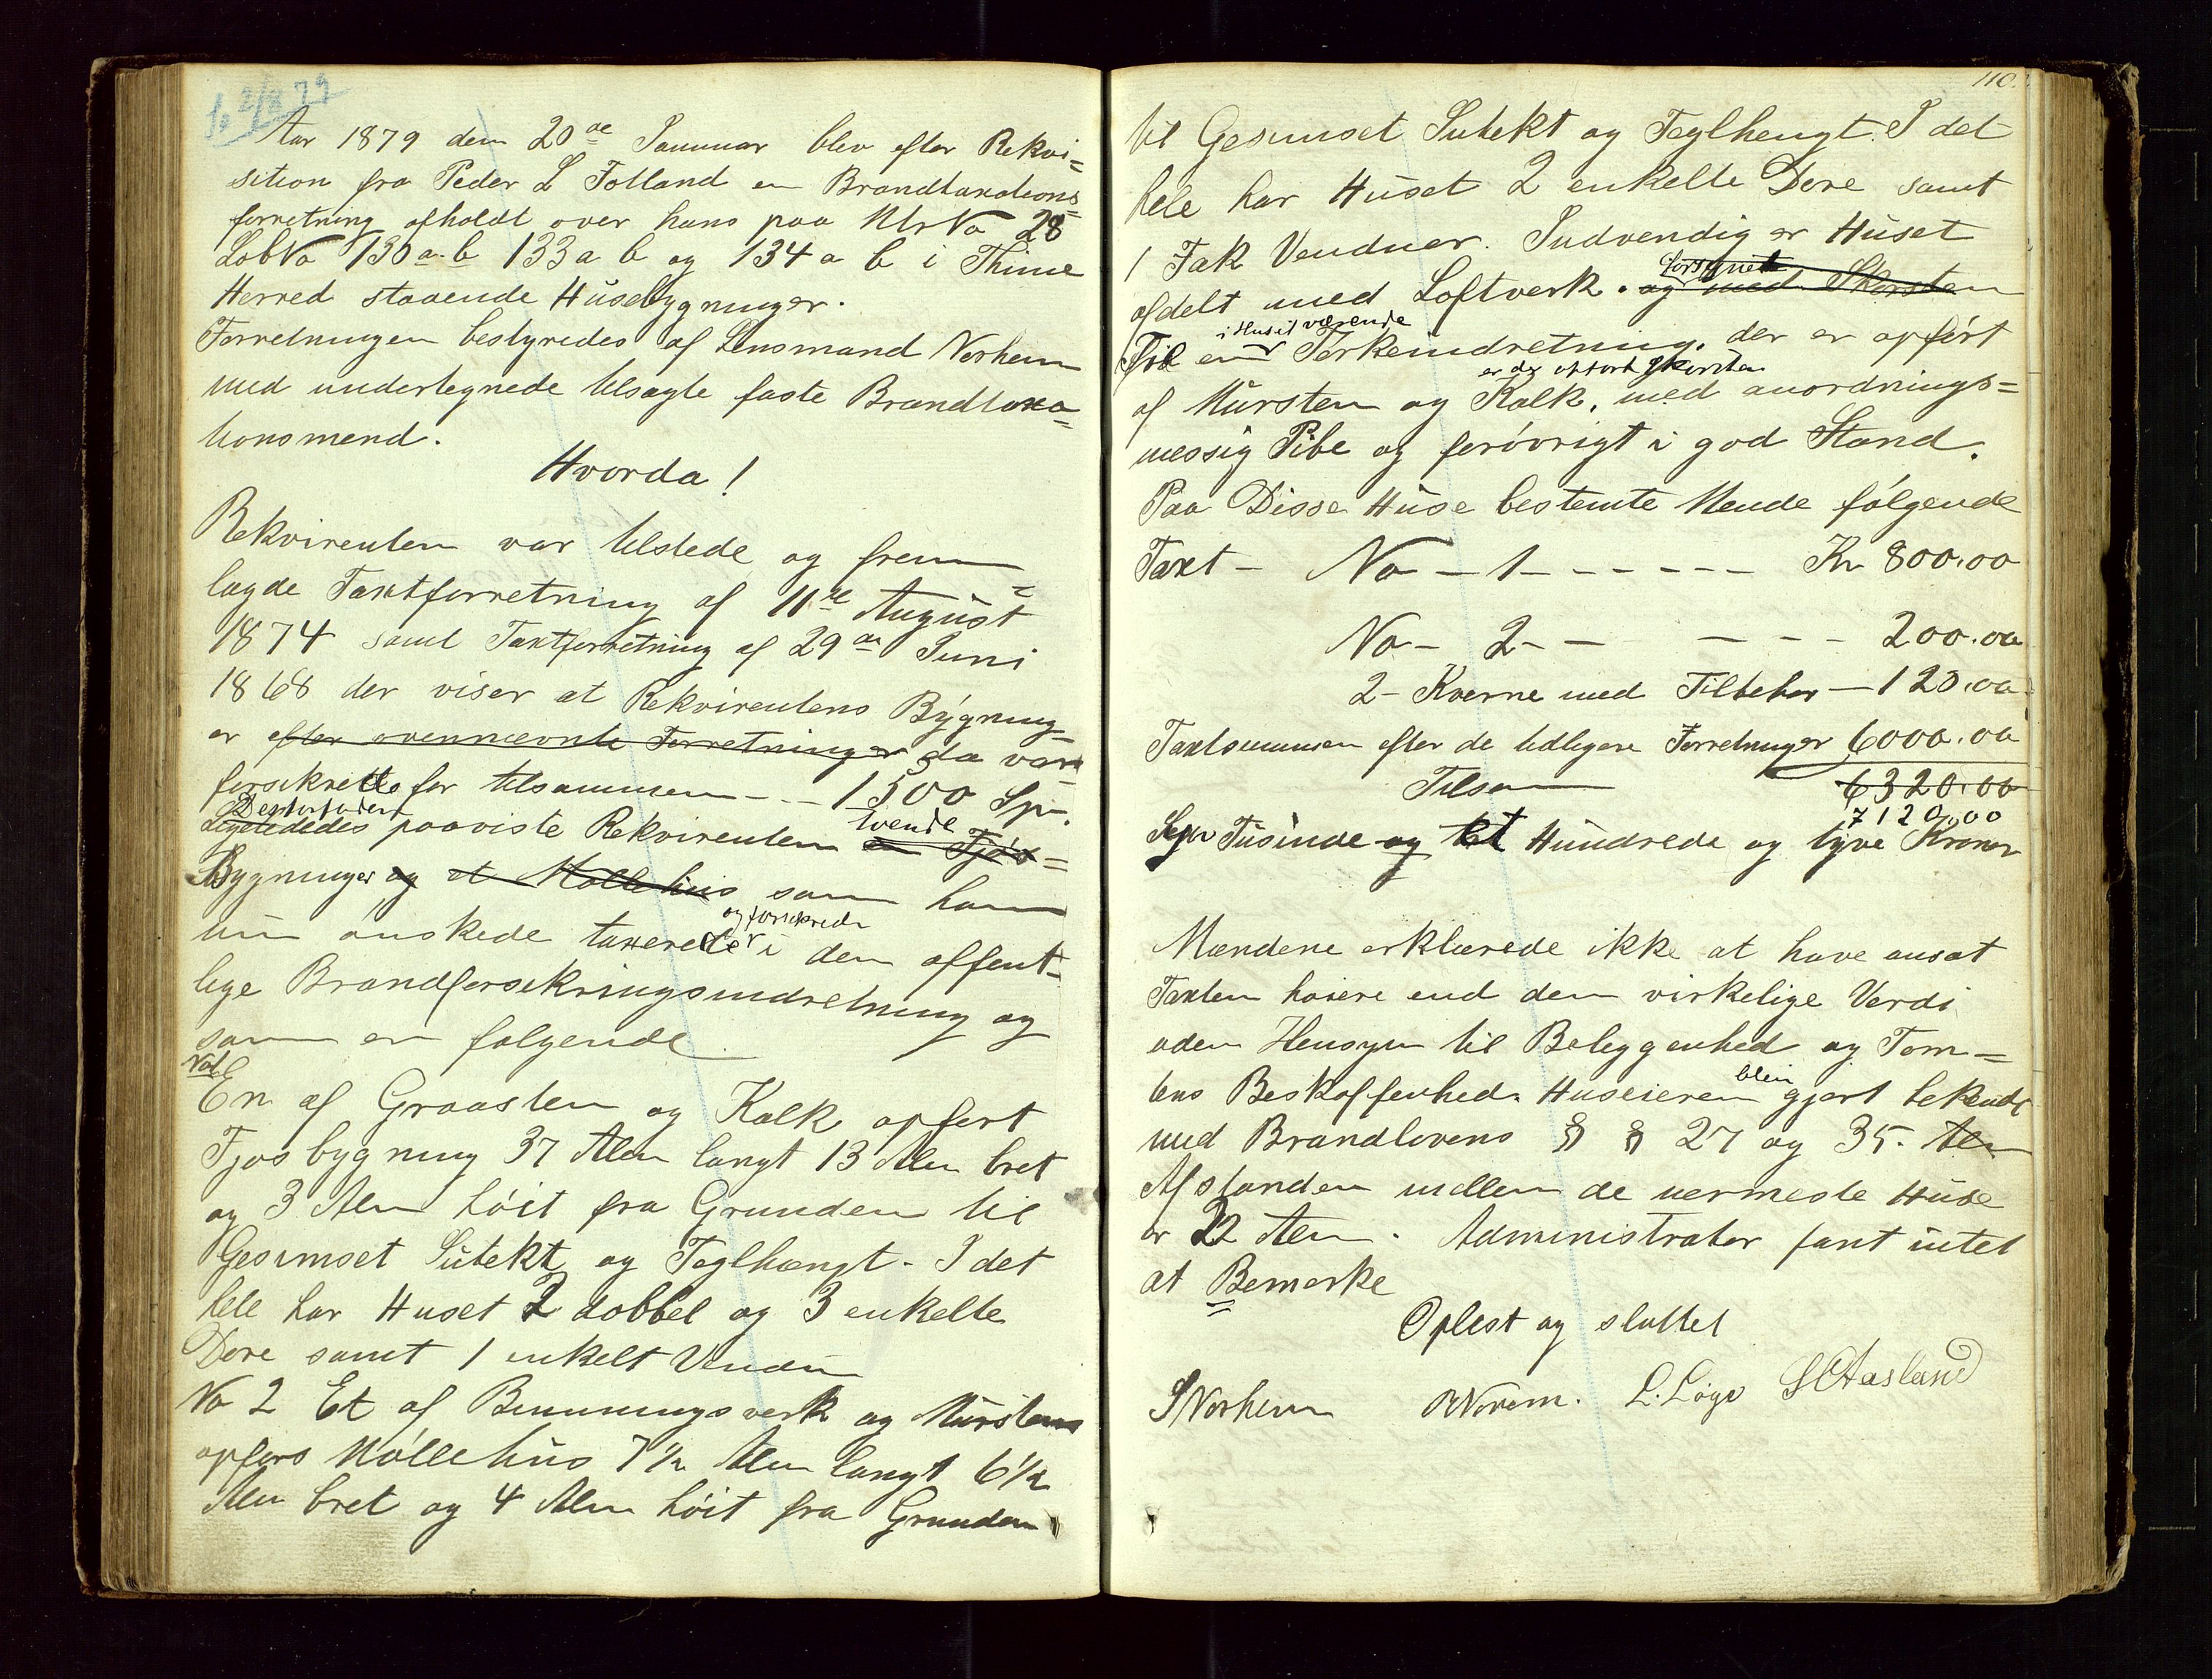 2/8 79
Aar 1879 den 20de Januar blev efter Rekvi=
sition fra Peder L Folland en Brandtaxations=
forretning afholdt over hans paa MtrNo 28
LobNo 130 a. b 133 a b og 134 a b i Thime
Herred staaende Husebygninger.
Forretningen bestyredes af Lensmand Norheim
med undertegnede tilsagte faste Brandtaxa=
tionsmend.
Hvorda!
Rekvirenten var tilstede og frem=
lagde Taxtforretning af 11te August
1874 samt Taxtforretning af 29de Juni
1868 der viser at Rekvirentens Bÿgning=
er efter ovennævnte Forretninger da var
forsikrette for tilsammen - - - 1500 Sp.
Desforuden
Ligeledes paaviste Rekvirenten tvende en Fjøs=
Bygninger og et Møllehus som han
og forsikrede
nu ønskede taxerede i den offent=
lige Brandforsikringsindretning og
som er folgende
No 1
En af Graasten og Kalk opfert
Fjosbygning 37 Alen langt 13 Alen bret
og 3 Alen høit fra Grunden til
Gesimset Sutekt og Teglhængt - I det
hele har Huset 2 dobbel og 3 enkelte
Dore samt 1 enkelt Vindu
No 2 Et af Binnningsverk og Mursten
opfors Møllehus 7 1/2 Alen langt 6 1/2
Alen bret og 4 Alen høit fra Grunden
110.
til Gesimset Sutekt og Teglhengt. I det
hele har Huset 2 enkelte Dore samt
1 Fak Venduer. Indvendig er Huset
forsynet
afdelt med Loftverk. og med Skorsten
i Huset værende
Til en Torkeindretning. der er opført
er der opfort Skorsten
af Mursten og Kalk, med anordnings=
messig Pibe og forøvrigt i god Stand.
Paa Disse Huse bestemte Mende følgende
Taxt - No - 1 - - - - - - Kr 800.00
No - 2 - - - - - 200.00
2 - Kverne med Tilbehor - 120.00
Taxtsummen efter de tidligere Forretninger 6000.00
Tilsam 6320.00
7120.00
Syv Tusinde og et Hundrede og tyve Kroner
Mændene erklærede ikke at have ansat
Taxten hoiere end den virkelige Verdi
uden Hensyn til Beliggenhed og Tom=
tens Beskaffenhed. Huseieren blev gjort bekendt
med Brandlovens § § 27 og 35. Alen
Afstanden mellem de nermeste Huse
er 22 Alen. Administrator fant intet
at Bemerke
Oplest og sluttet
S Norheim O Norem. L. Løge S O Aasland